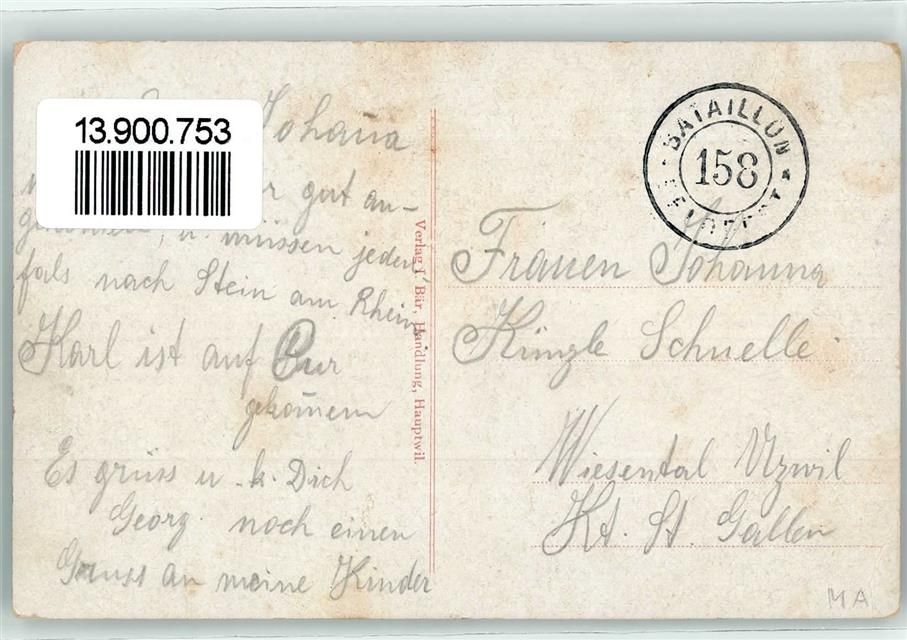 13.900.753
Johana
gut an-
u. müssen jeden
fals nach Stein am Rhein.
Karl ist auf Cur
gekomem
Es grüss u. k. Dich
Georg. noch einen
Gruss an meine Kinder
Verlag J. Bär, Handlung, Hauptwil.
BATAILLON
158
Frauen Johanna
Künzle Schnelle
Wiesental Uzwil
Kt. St. Gallen
MA